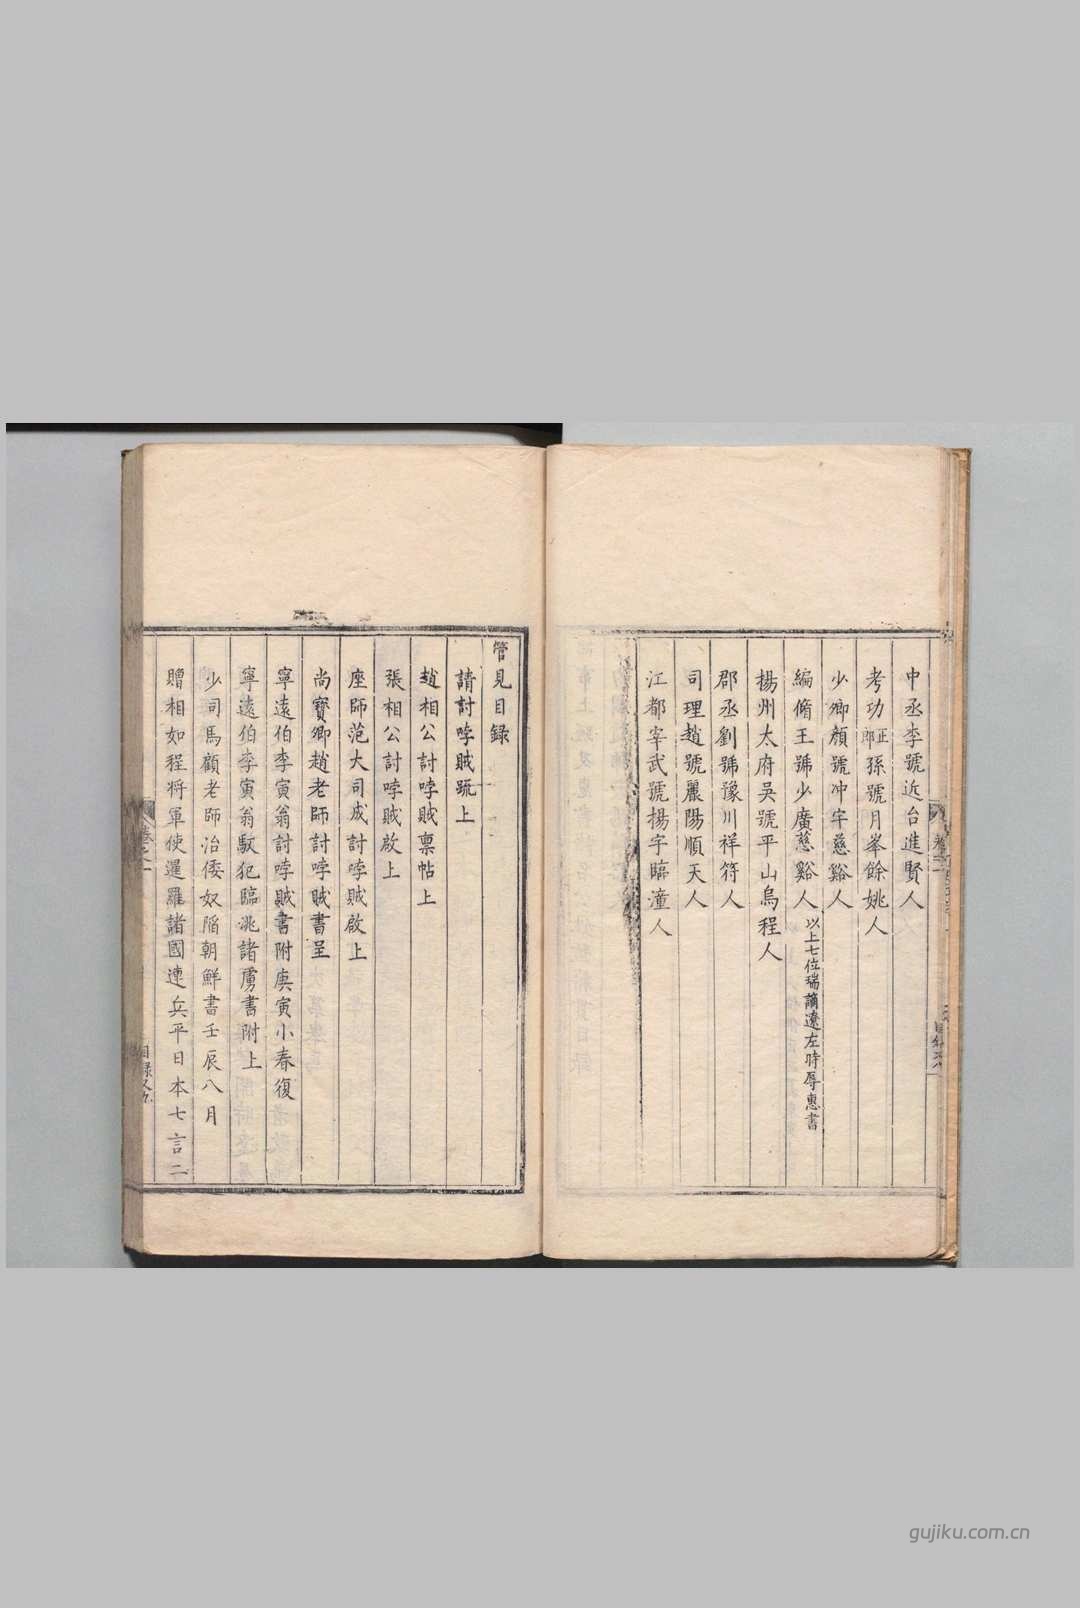 中丞李號近台進賢人
考功郎正孫號月峯餘姚人
少卿顏號冲宇慈谿人
編脩王號少廣慈谿人以上七位瑞蘭遼左時辱惠書
揚州太府吳號平山烏程人
郡丞劉號豫川祥符人
司理趙號麗陽順天人
江都宰武號揚宇臨潼人
管見目録
請討哱賊䟽上
趙相公討哱賊禀帖上
張相公討哱賊啟上
座師范大司成討哱賊啟上
尚寳卿趙老師討哱賊書呈
寧遠伯李寅翁討哱賊書附庚寅小春復
寧遠伯李寅翁馭犯臨洮諸虜書附上
少司馬顧老師治倭奴䧟朝鮮書壬辰八月
贈相如程將軍使暹羅諸國連兵平日本七言二
gujiku.com.cn